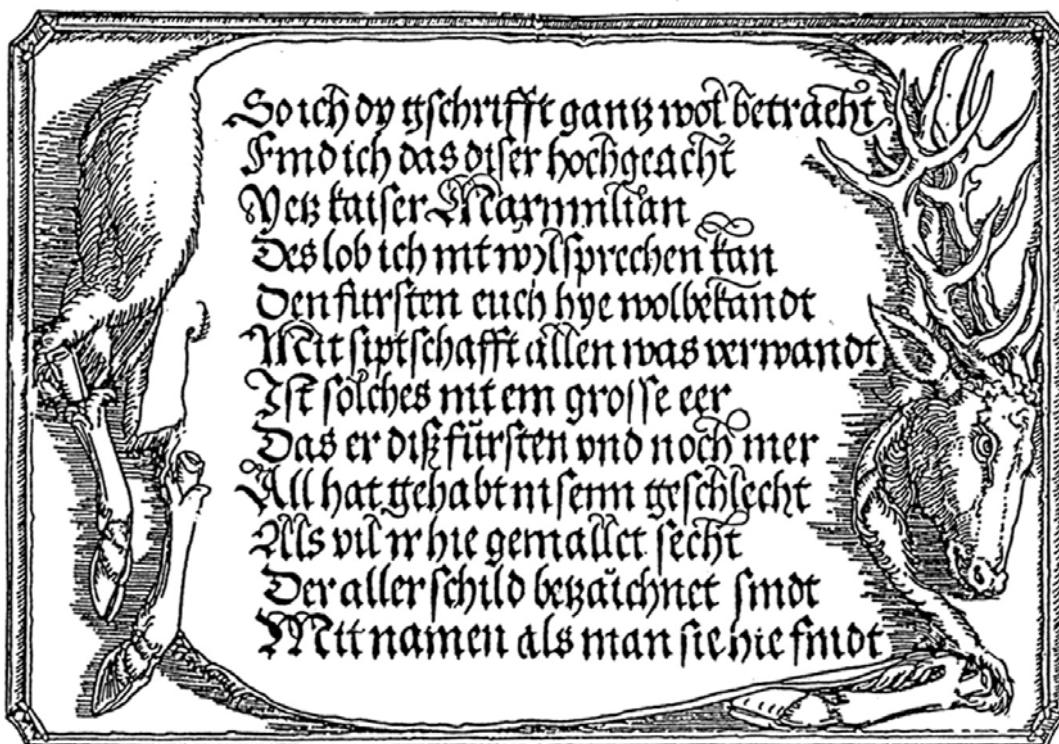 So ich dy gschrifft gantz wol betracht
Find ich das diser hochgeacht
Yetz kaiser Maxmilian
Des lob ich nit volsprechen kan
Den fursten euch hye wolbekandt
Mit siptschafft allen was verwandt
Ist sölches nit ein grosse eer
Das er diß fürsten vnd noch mer
All hat gehabt in seim geschlecht
Als vil ir hie gemallet secht
Der aller schild betzaichnet sindt
Mit namen als man sie hie findt